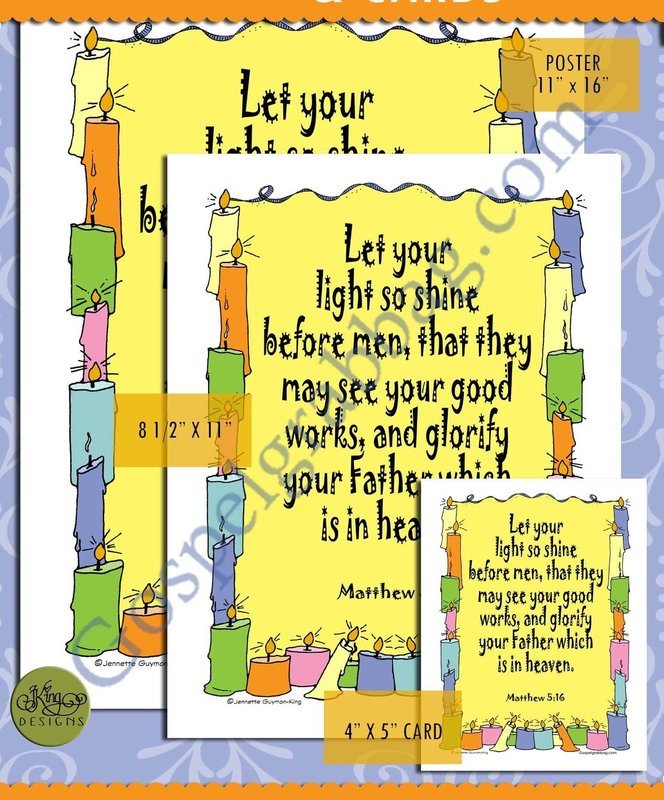 & CARDS
POSTER
11" x 16"
Let your
light so shine
8 1/2" X 11"
Let your
light so shine
before men, that they
may see your good
works, and glorify
your Father which
is in
Matthew
©Jennette Guymon-King
©Jennette Guymon-King
4" X 5" CARD
Let your
light so shine
before men, that they
may see your good
works, and glorify
your Father which
is in heaven.
Matthew 5:16
©Jennette Guymon-King
Gospelgrabbag.com
JKing
DESIGNS
Gospelgrabbag.com